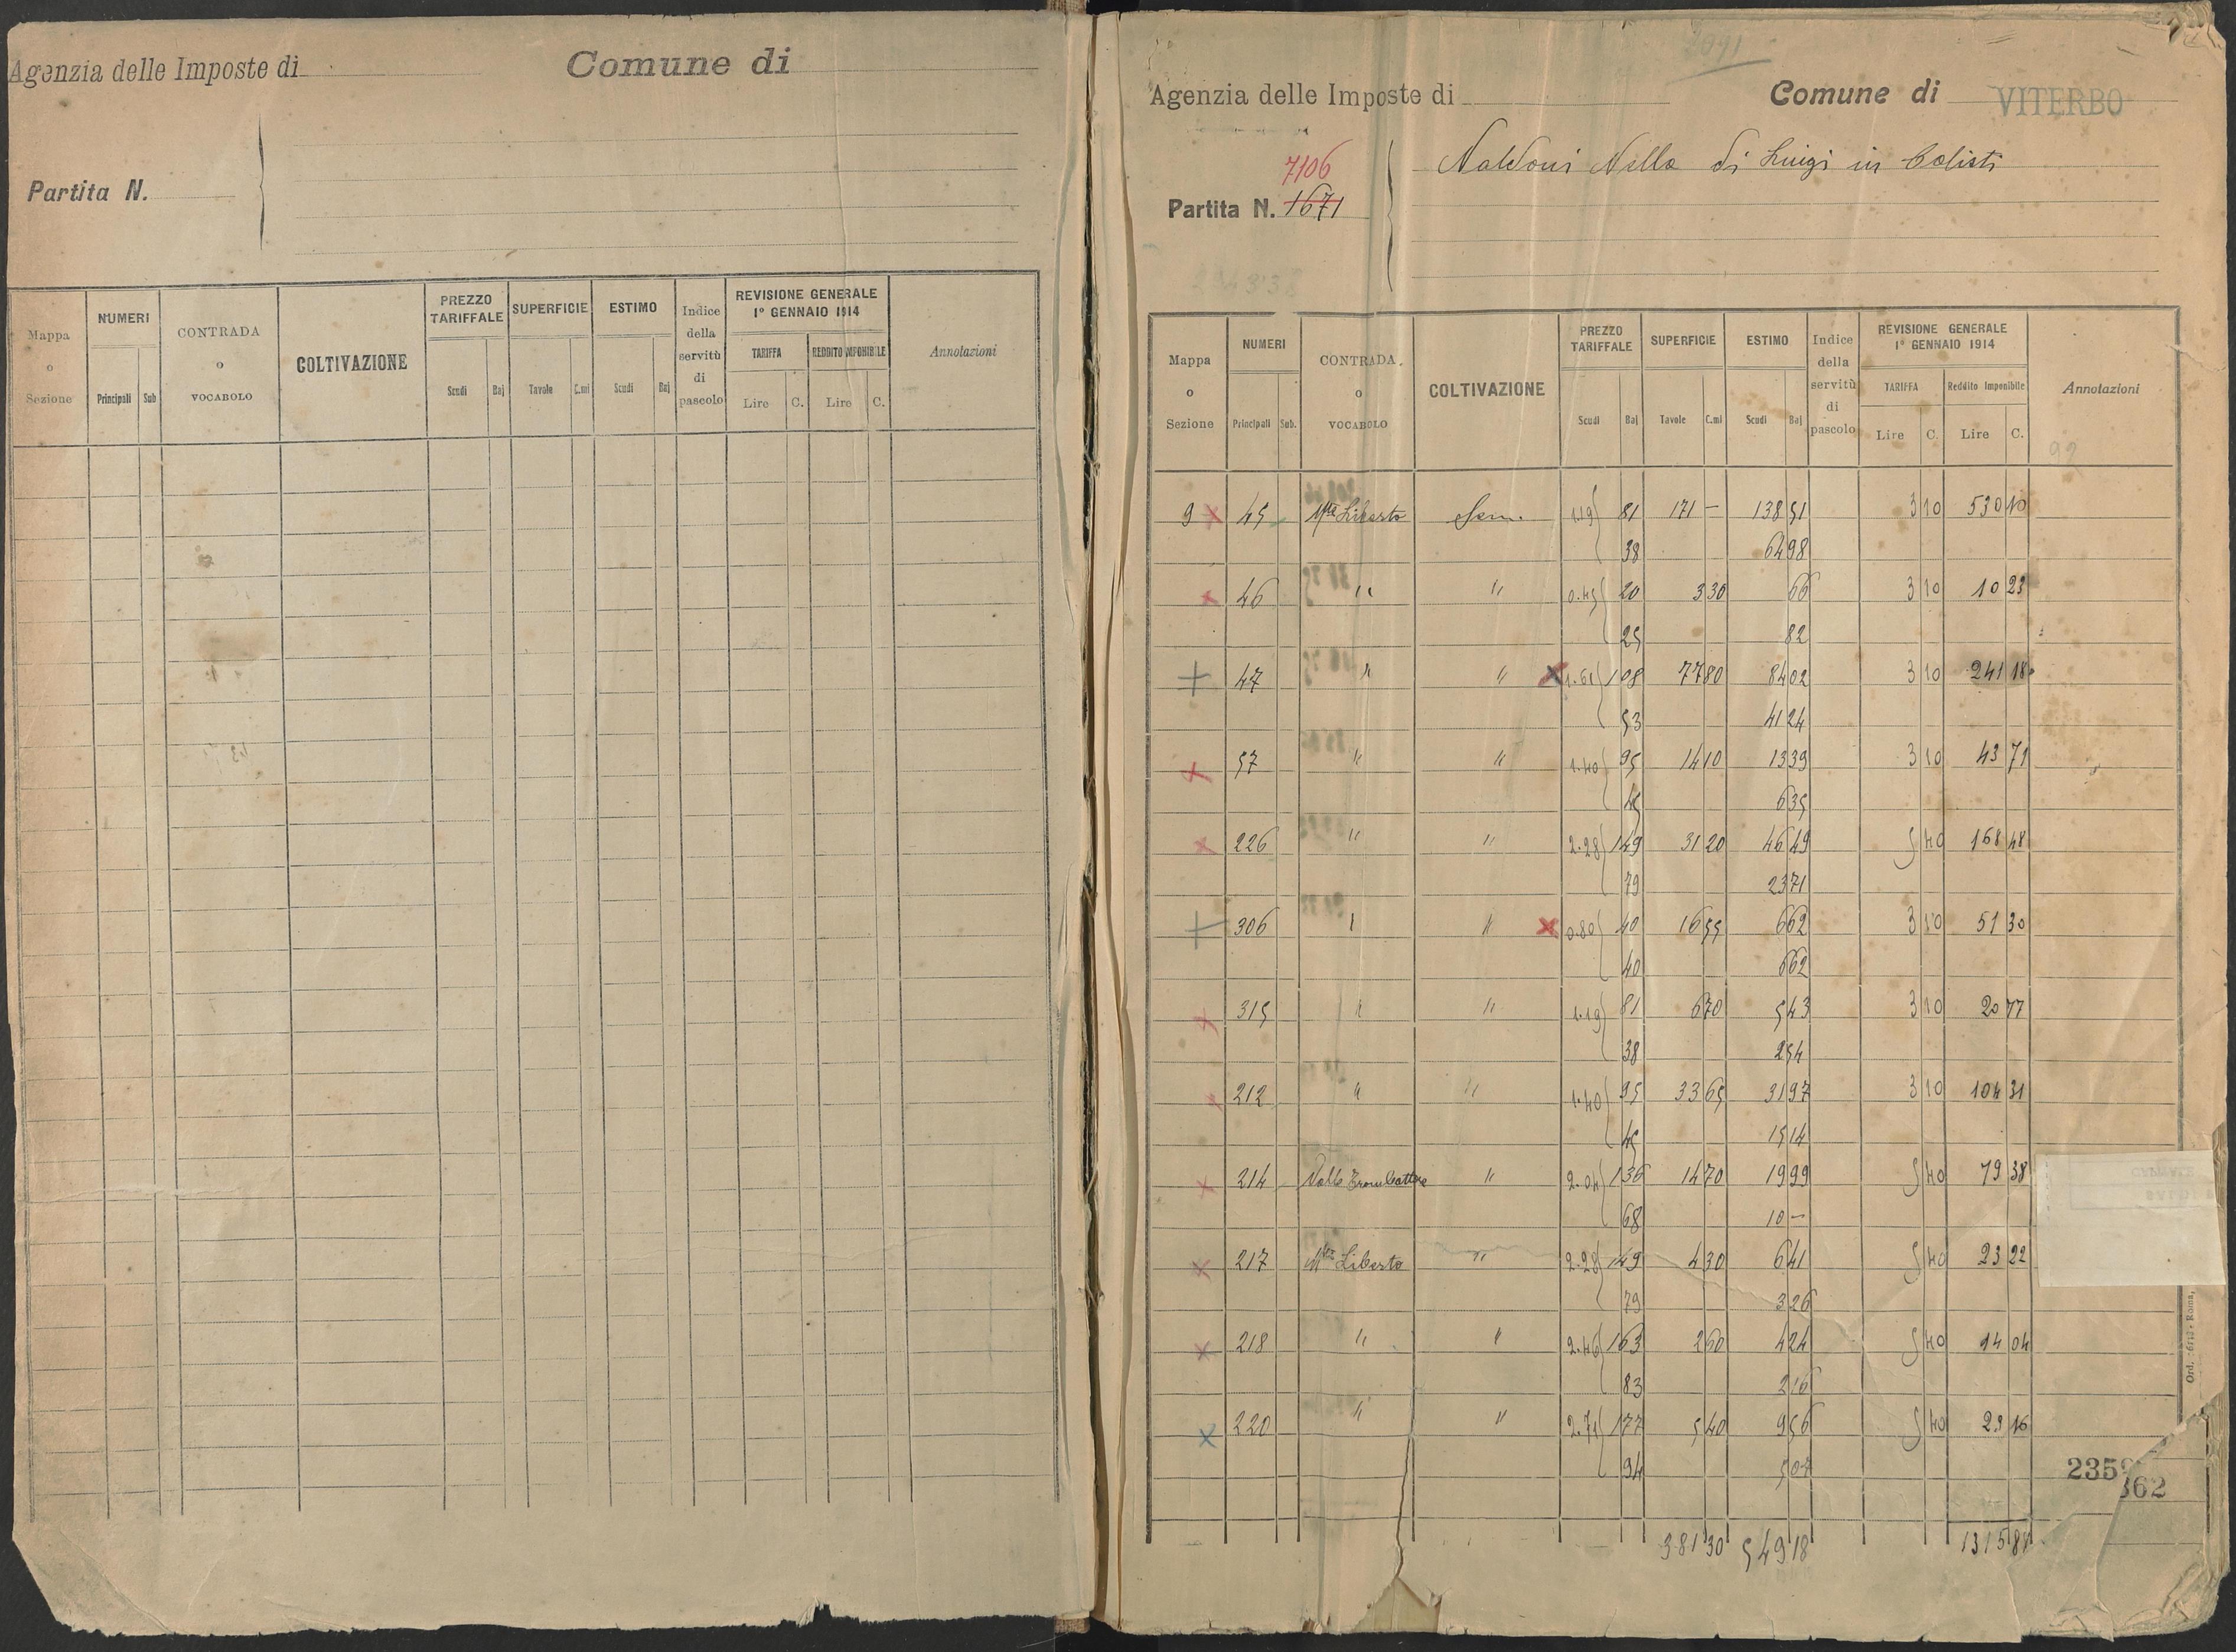 Agenzia delle Imposte di Comune di
Partita N.
Mappa o Sezione NUMERI Principali Sub CONTRADA o VOCABOLO COLTIVAZIONE PREZZO TARIFFALE Scudi Baj SUPERFICIE Tavole C.mi ESTIMO Scudi Baj Indice della servitù di pascolo REVISIONE GENERALE 1° GENNAIO 1914 TARIFFA Lire C. REDDITO IMPONIBILE Lire C. Annotazioni
2091
Agenzia delle Imposte di Comune di VITERBO
7106
Partita N. 1671
Naldoni Nella di Luigi in Calisti
Mappa o Sezione NUMERI Principali Sub. CONTRADA o VOCABOLO COLTIVAZIONE PREZZO TARIFFALE Scudi Baj SUPERFICIE Tavole C.mi ESTIMO Scudi Baj Indice della servitù di pascolo REVISIONE GENERALE 1° GENNAIO 1914 TARIFFA Lire C. Reddito Imponibile Lire C. Annotazioni
99
9 x 45 Mte Liberto Sem. 1.19 81 171 — 138 51 3 10 530 10
38 64 98
x 46 " " 0.45 20 3 30 66 3 10 10 23
25 82
+ 47 " " x 1.61 108 77 80 84 02 3 10 241 18
53 41 24
x 57 " " 1.40 95 14 10 13 39 3 10 43 71
45 6 35
x 226 " " 2.28 149 31 20 46 49 5 40 168 48
79 23 71
+ 306 " " x 0.80 40 16 55 6 62 3 10 51 30
40 6 62
x 315 " " 1.19 81 6 70 5 43 3 10 20 77
38 2 54
x 212 " " 1.40 95 33 65 31 97 3 10 104 31
45 15 14
x 214 Valle Trombattore " 2.04 136 14 70 19 99 5 40 79 38
68 10 —
x 217 Mte Liberto " 2.28 149 4 30 6 41 5 40 23 22
79 3 26
x 218 " " 2.46 163 2 60 4 24 5 40 14 04
83 2 16
x 220 " " 2.71 177 5 40 9 56 5 40 29 16
94 5 07
362
381 30 549 18 1315 81